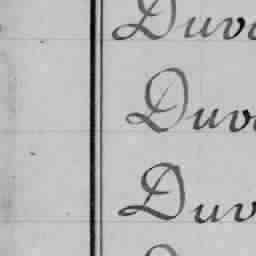 Duva
Duva
Duv